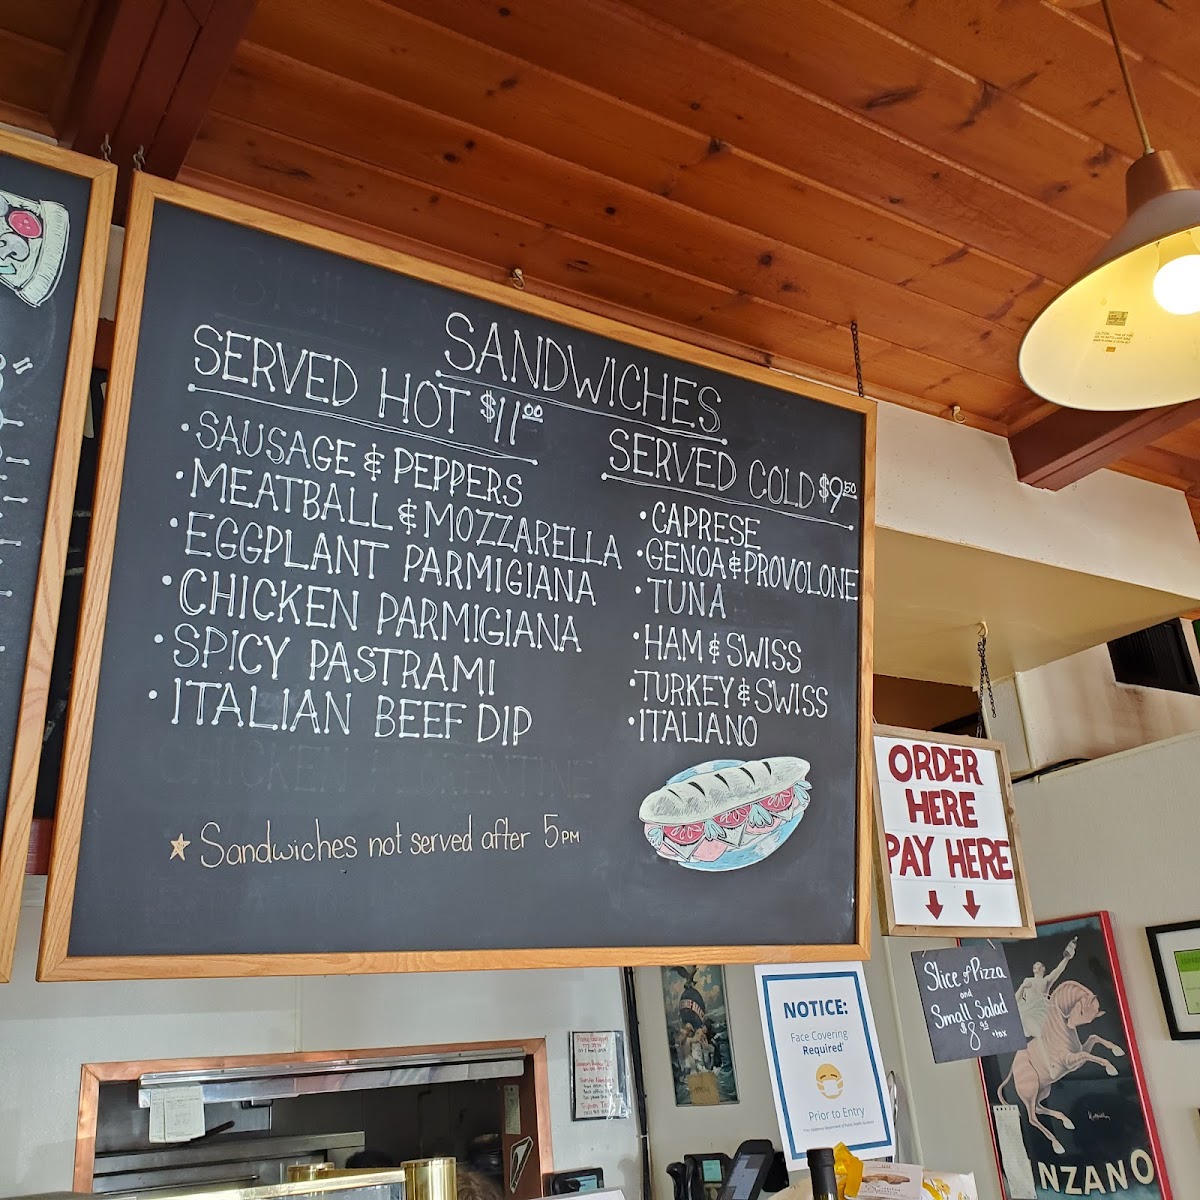 SANDWICHES
SERVED HOT $11.00
• SAUSAGE & PEPPERS
• MEATBALL & MOZZARELLA
• EGGPLANT PARMIGIANA
• CHICKEN PARMIGIANA
• SPICY PASTRAMI
• ITALIAN BEEF DIP
CHICKEN FLORENTINE
★ Sandwiches not served after 5 PM
SERVED COLD $9.50
• CAPRESE
• GENOA & PROVOLONE
• TUNA
• HAM & SWISS
• TURKEY & SWISS
• ITALIANO
ORDER
HERE
PAY HERE
Slice of Pizza
and
Small Salad
$8.95
+tax
NOTICE:
Face Covering
Required*
Prior to Entry
NZANO